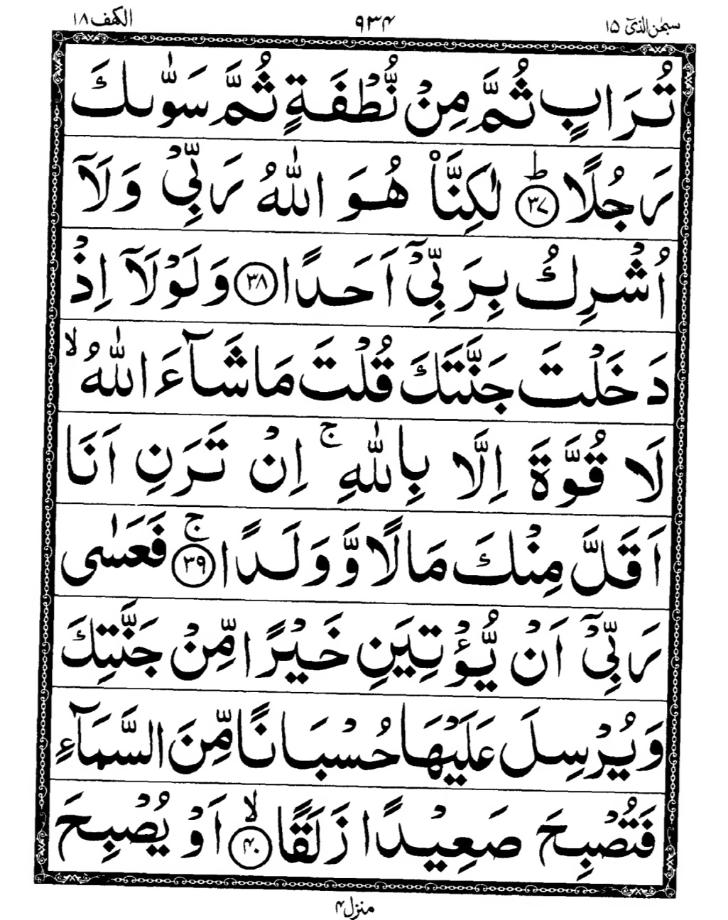 سبحن الذیٓ ۱۵ ۹۳۴ الکهف ۱۸
تُرَابٍ ثُمَّ مِنْ نُّطْفَةٍ ثُمَّ سَوّٰىكَ
رَجُلًا ؕ﴿۳۷﴾ لٰكِنَّا۠ هُوَ اللّٰهُ رَبِّیْ وَلَاۤ
اُشْرِكُ بِرَبِّیْۤ اَحَدًا ﴿۳۸﴾ وَلَوْلَاۤ اِذْ
دَخَلْتَ جَنَّتَكَ قُلْتَ مَا شَآءَ اللّٰهُ ۙ
لَا قُوَّةَ اِلَّا بِاللّٰهِ ۚ اِنْ تَرَنِ اَنَا
اَقَلَّ مِنْكَ مَالًا وَّ وَلَدًا ۚ﴿۳۹﴾ فَعَسٰی
رَبِّیْۤ اَنْ یُّؤْتِیَنِ خَیْرًا مِّنْ جَنَّتِكَ
وَیُرْسِلَ عَلَیْهَا حُسْبَانًا مِّنَ السَّمَآءِ
فَتُصْبِحَ صَعِیْدًا زَلَقًا ۙ﴿۴۰﴾ اَوْ یُصْبِحَ
منزل ۴